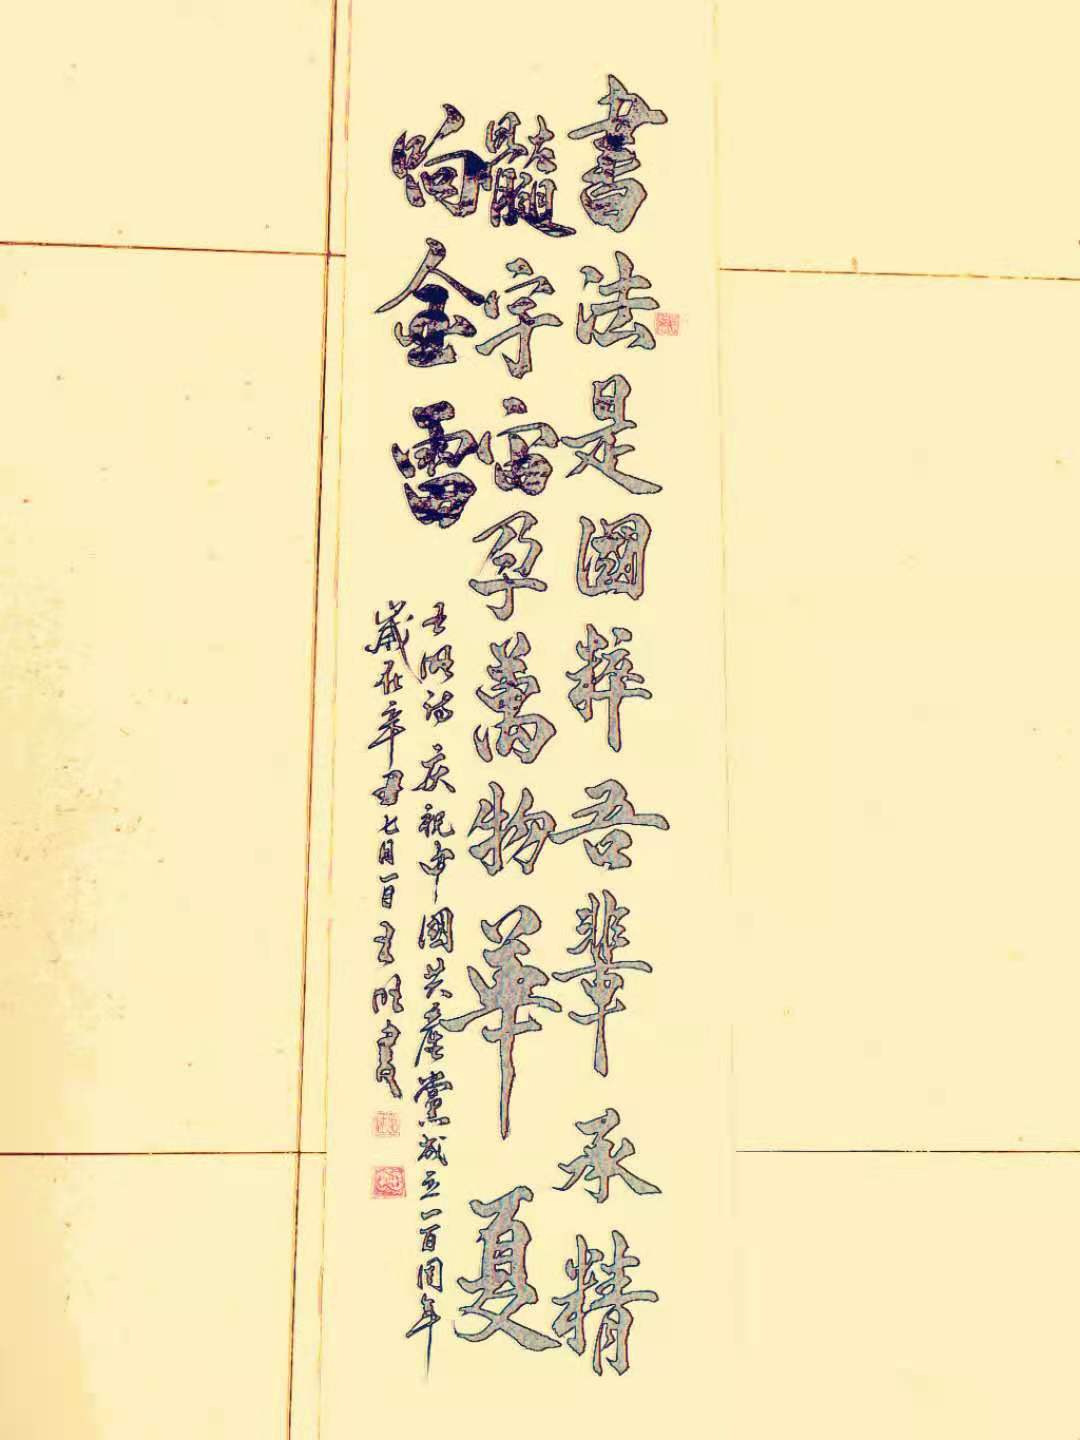 書法是國粹吾輩承精
髓字宙孕萬物華夏
响金雷
庆祝中國共產黨成立一百周年
歲在辛丑七月一日書